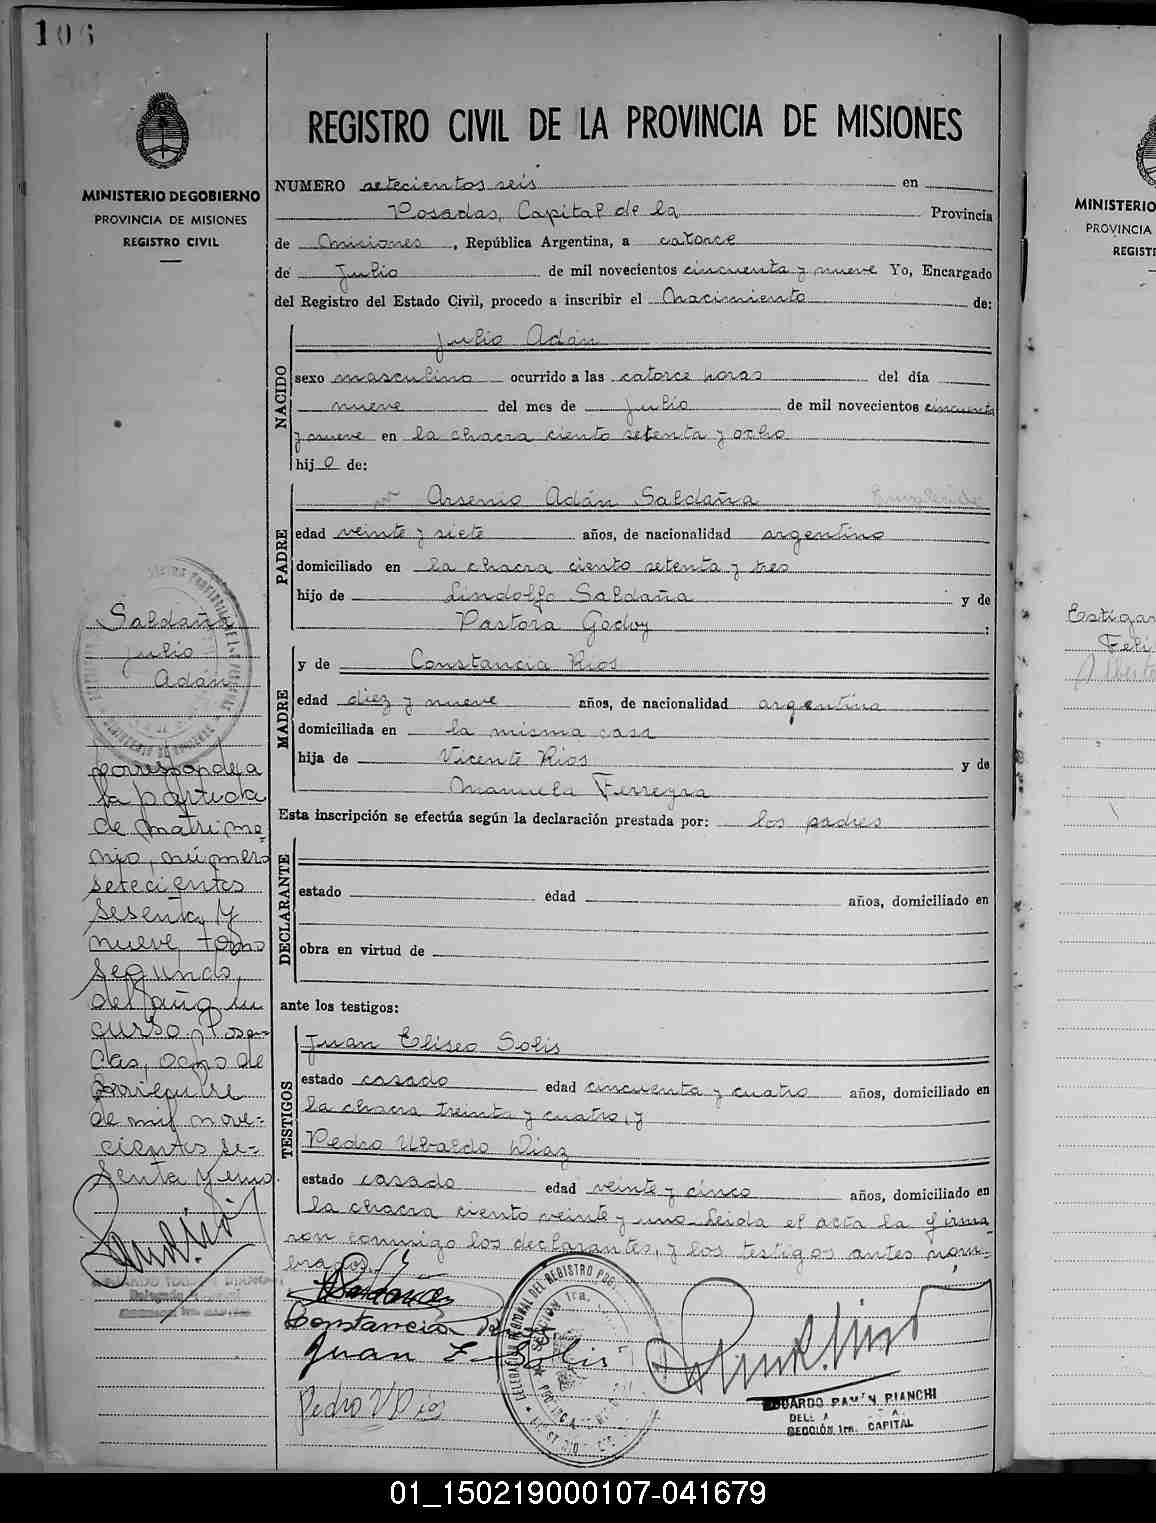 106
MINISTERIO DE GOBIERNO
PROVINCIA DE MISIONES
REGISTRO CIVIL
REGISTRO CIVIL DE LA PROVINCIA DE MISIONES
NUMERO setecientos seis en
Posadas, Capital de la Provincia
de Misiones, República Argentina, a catorce
de Julio de mil novecientos cincuenta y nueve Yo, Encargado
del Registro del Estado Civil, procedo a inscribir el Nacimiento de:
NACIDO
Julio Adán
sexo masculino ocurrido a las catorce horas del día
nueve del mes de Julio de mil novecientos cincuenta
y nueve en la chacra ciento setenta y ocho
hijo de:
PADRE
Arsenio Adán Saldaña
edad veinte y siete años, de nacionalidad argentino
domiciliado en la chacra ciento setenta y tres
hijo de Lindolfo Saldaña y de
Pastora Godoy :
MADRE
y de Constancia Rios
edad diez y nueve años, de nacionalidad argentina
domiciliada en la misma casa
hija de Vicente Rios y de
Manuela Ferreyra
Esta inscripción se efectúa según la declaración prestada por: los padres
DECLARANTE
estado edad años, domiciliado en
obra en virtud de
ante los testigos:
TESTIGOS
Juan Eliseo Solis
estado casado edad cincuenta y cuatro años, domiciliado en
la chacra treinta y cuatro, y
Pedro Ubaldo Diaz
estado casado edad veinte y cinco años, domiciliado en
la chacra ciento veinte y uno. Leida el acta la firma
ron conmigo los declarantes, y los testigos antes nom-
brados.
Constancia Rios
Juan E. Solis
Pedro U Diaz
EDUARDO RAMÓN BIANCHI
SECCIÓN 1ra. CAPITAL
Saldaña
Julio
Adán
Corresponde a
la partida
de matrimo
nio, número
setecientos
sesenta y
nueve, tomo
segundo,
del año en
curso. Posa-
das, ocho de
de mil nove-
cientos se-
senta y uno.
MINISTERIO
PROVINCIA
REGIST
Estigar
Feli
Alberto
01_150219000107-041679